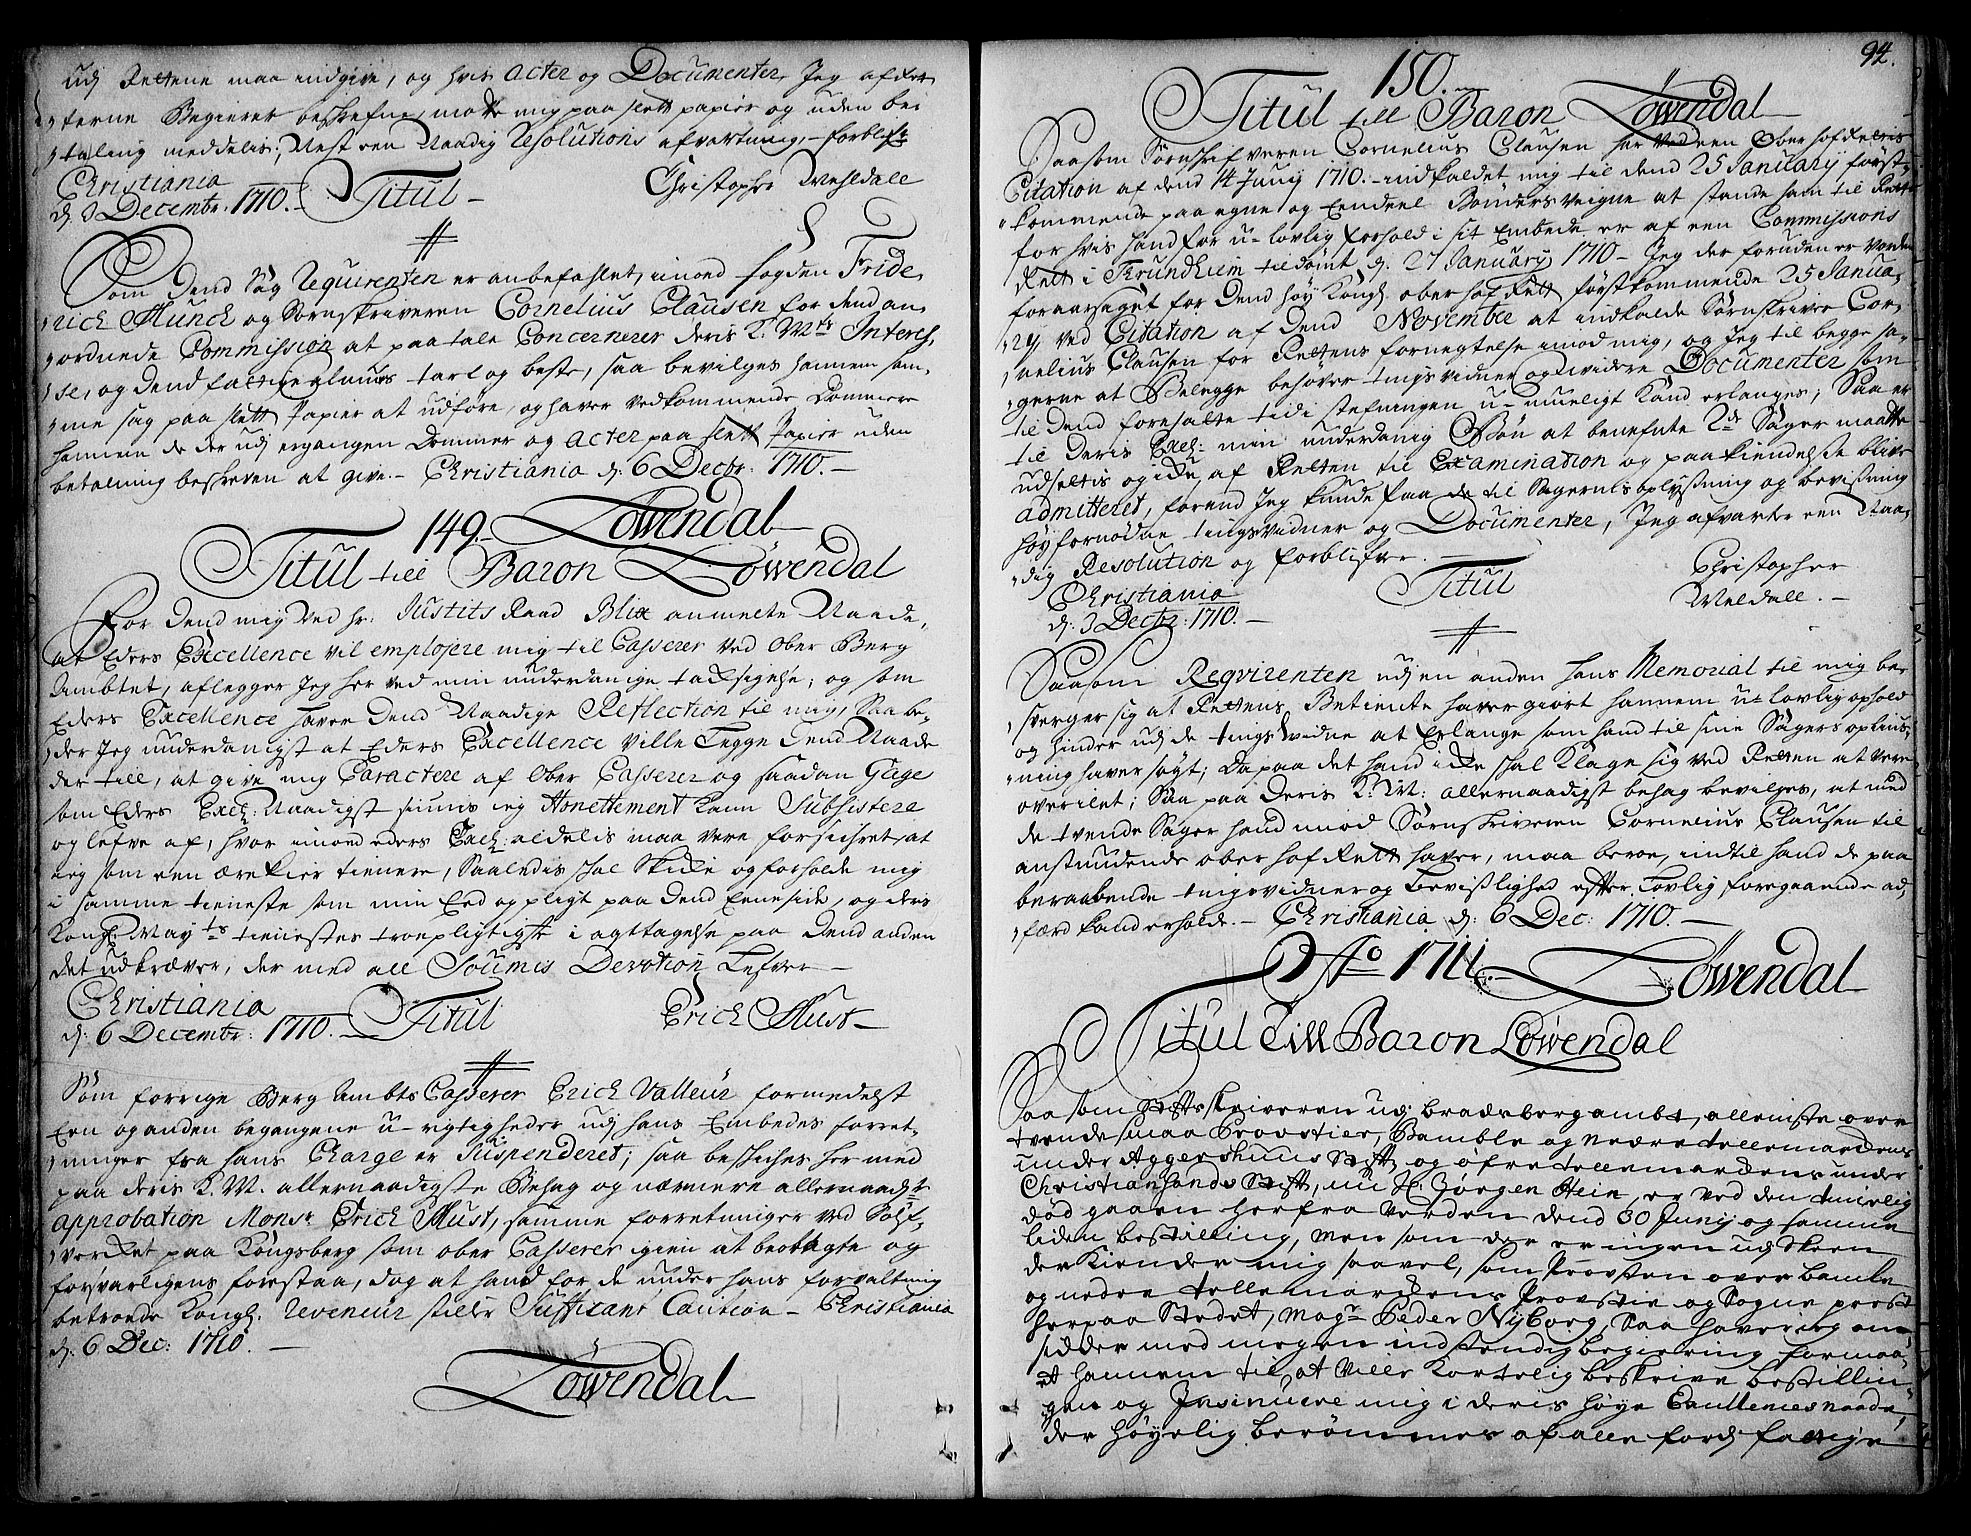 udj Rettene maa indgive, og hvis Acter og Documenter, Jeg af Ret-
terne Begierer beskrefne, motte mig paa slett papier og uden bei
taling meddelis; Nest een Naadig Resolutions afvartning, forblifr
Christiania
d. 3 Decembr. 1710. Titul Christopher Wehldalle
Som dend Søg Requirenten er anbefahlet, imod fogden Fride,
rich Munch og Sørnskriveren Cornelius Clausen for dend an,
ordnede Commission at paatale Concernerer deris K. Mts Interes,
se, og dend fattige almues tarf og beste, saa bevilges hannem sam,
me sag paa slett Papier at udføre, og haver vedkommende Dommere
hannem de der udj ergangen Dommer og Acter paa slett Papier uden
betalning beskreven at give. Christiania d. 6 Decbr. 1710.
149. Løwendal
Titul till Baron Løwendal
For dend mig ved hr. Justits Raad Blix anmelte Naade,
at Eders Excellence vil emplojere mig til Casserer ved Ober Berg
Ambtet, aflegger Jeg her ved min underdanige tacksigelse; og som
Eders Excellence haver dend Naadige Reflection til mig, Saa be-
der Jeg underdanigst at Eders Excellence ville Legge dend Naade
der till, at give mig Caractere af Ober Casserer og saadan Gage
som Eders Excl: Naadigst siunis jeg Honettement kann Subsistere
og lefve af, hvor imod eders Excl: aldelis maa vere forsichret at
jeg som een ærekier tienere, Saaledis skal Skicke og forholde mig
i samme tieneste som min Eed og pligt paa dend Eene side, og deris
Kongl. Mayts tienestes troepligtigste i agttagelse paa dend anden
det udkræver, der med all Soumis Devotion Lefver
Christiania
d: 6 Decembr: 1710. Titul Erich Must
Som forrige Berg Ambts Casserer Erich Valleur formedelst
Een og anden begangene u-rigtigheder udj hans Embedes forret-
ninger fra hans Charge er Suspenderet; saa beskiches her med
paa deris K. M. allernaadigste Behag og nærmere allernaadst
approbation Monsr Erich Must, samme forretninger ved Sølf-
verket paa Kongsberg som ober Casserer igien at betragte og
forsvarligens forestaa, dog at hand for de under hans forvaltning
betroede Kongl. Reveneur stiller Suffisant Caution. Christiania
d. 6 Dec: 1710.
Løwendal
94.
150.
Titul till Baron Løwendal
Saasom Sørnskrifveren Cornelius Clausen her ved een Oberhofrettis
Citation af dend 14 Junij 1710. indkaldet mig til dend 25 January først-
kommende paa egne og Eendeel Bønders veigne at stande ham til Rette
for hvis hand for u-lovlig forhold i sit Embede er af een Commissions
Rett i Trundhiem tildømt d. 27 January 1710. Jeg der foruden er vorden
foraarsaget for Dend høy Kongl. oberhofRett førstkommende 25 Janua,
ry ved Citation af dend November at indkalde Sørnskriver Cor-
nelius Clausen for Rettens fornegtelse imod mig, og Jeg til begge sa-
gerne at Belegge behøver tingsvidner og videre Documenter som
til dend foresatte tid i stefningen u-mueligt Kand erlanges; Saa er
til Deris Excl: min underdanig Bøn at benefnte 2de Sager maatte
udsettis og icke af Retten til Examination og paakiendelse blive
admitteret, forend Jeg kunde faa de til Sagernis oplysning og bevisning
høyfornødne tingsvidner og Documenter, Jeg afvarter een Naa,
dig Resolution og forblifver.
Christiania
d: 3 Decbr: 1710. Titul Christopher
Weldalle.
Saasom Reqvirenten udj en anden hans Memorial til mig be-
sverger sig at Rettens Betiente haver giort hannem u-lovlig ophold
og hinder udj de tings vidne at Erlange som hand til sine Sagers oplius-
ning haver søgt; Da paa det hand icke skal Klage sig ved Retten at vere
overilet; Saa paa Deris K. M: allernaadigst behag bevilges, at med
de tvende Sager hand imod Sørnskriveren Cornelius Clausen til
anstundende oberhofRett haver, maa beroe, indtil hand de paa
beraabende tingsvidner og bevislighed efter Lovlig foregaaende ad,
færd kand erholde. Christiania d. 6 Dec: 1710.
Ao 1711. Løwendal
Titul Till Baron Løwendal
Saasom Stiftsskriveren udj Bradsberg ambt, alleniste over
tvende smaa Provstier, Bamble og Nedre Tellemarckens
under Aggershuus Stift, og øfre Tellemarckens under
Christiansands Stift, nu H. Jørgen Hein, er ved den timelig
død gaaen herfra verden dend 30 Junij og samme
liden bestilling, men som der er ingen udj Skeen
der Kiender mig saavel, som Provsten over Bamble
og nedre Tellemarckens Provstie og Sogne prest
her paa Stedet, Magr Peder Nyborg, saa haver jeg om-
sidder med megen indstendig begiering formaa-
et hannem til, at ville Kortelig beskrive bestillin-
gen og Insinuere mig i deris høye Excellences naade,
der høyelig berømmes af alle fordj fattige